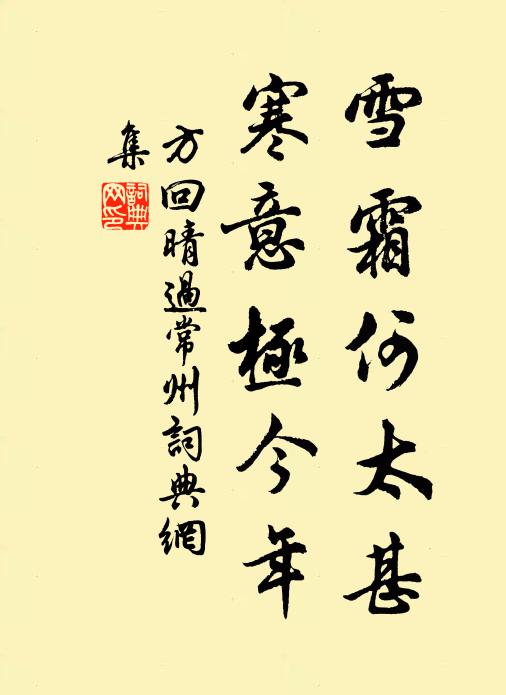 雪霜何太甚
寒意極今年
方回晴過常州詞典網
集
詞典網印